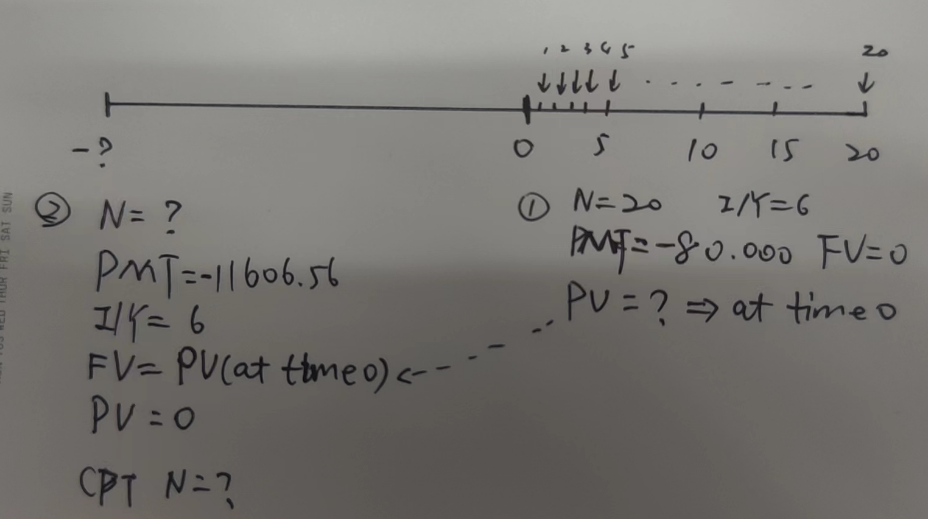 1 2 3 4 5 20
-? 0 5 10 15 20
① N=20 I/Y=6
PMT=-80.000 FV=0
PV=? ⇒ at time 0
② N=?
PMT=-11606.56
I/Y=6
FV=PV(at time 0)
PV=0
CPT N=?
THUR FRI SAT SUN